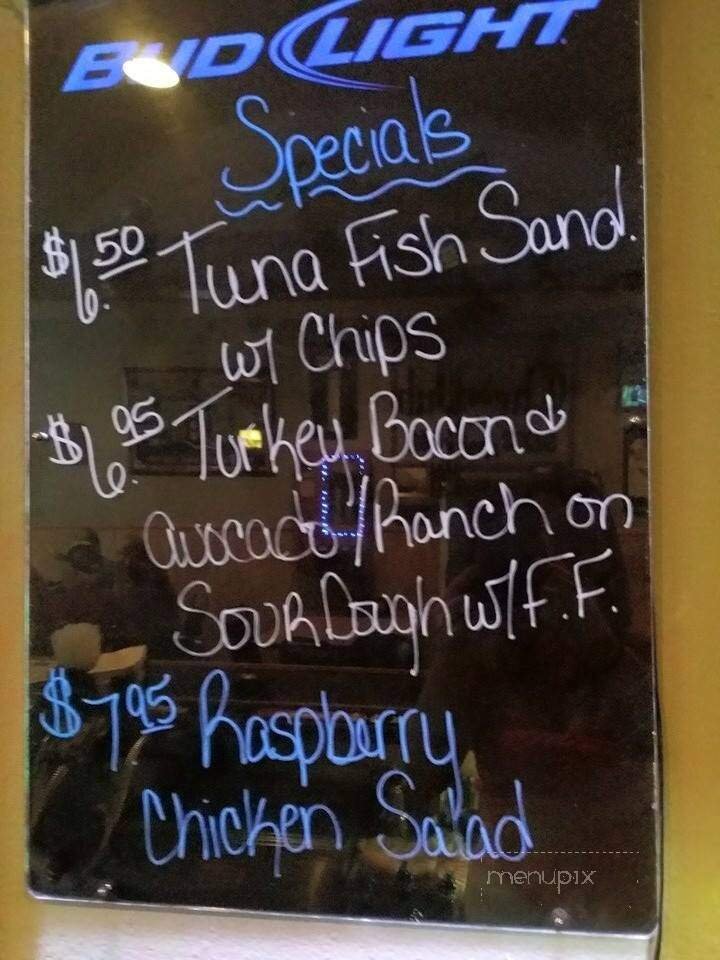 BUD LIGHT
Specials
$6.50 Tuna Fish Sand.
w/ Chips
$6.95 Turkey Bacon &
avocado/Ranch on
SourDough w/F.F.
$7.95 Raspberry
Chicken Salad
menupix